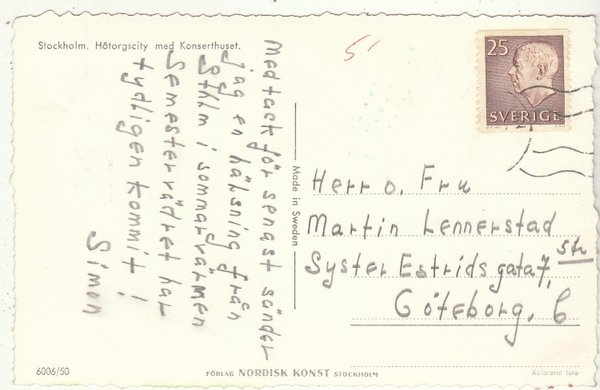 Stockholm. Hötorgscity med Konserthuset.
Med tack för senast sänder
jag en hälsning från
Sthlm i sommarvärmen
Semestervädret har
tydligen kommit!
Simon
Made in Sweden
5
25
SVERIGE
Herr o. Fru
Martin Lennerstad
Syster Estrids gata 7,
Göteborg, C
6006/50
FÖRLAG NORDISK KONST STOCKHOLM
Kolorerat foto